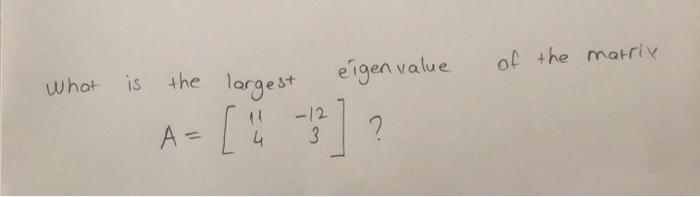 What is the largest eigenvalue of the matrix
A = [ 11 -12
4 3 ] ?